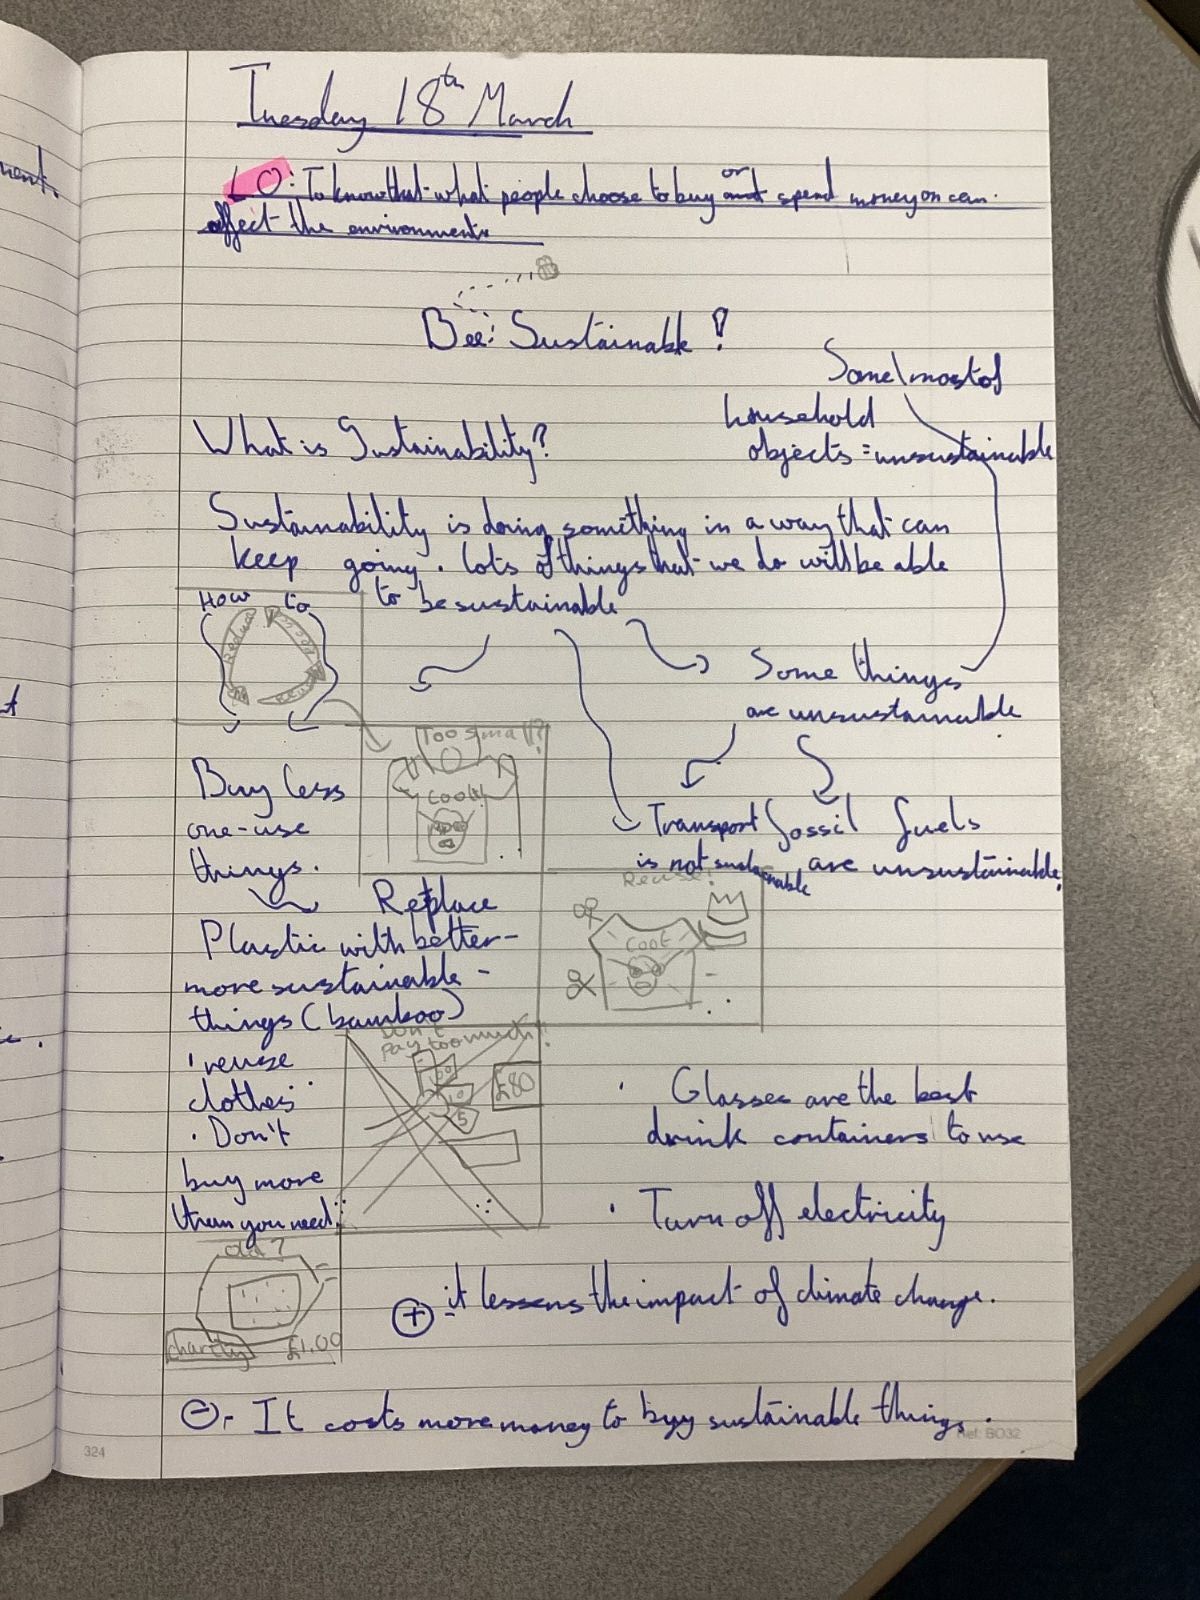 Tuesday 18th March
LO: To know that what people choose to buy or spend money on can
affect the environment.
Bee: Sustainable!
Some/most of
household
objects = unsustainable
What is Sustainability?
Sustainability is doing something in a way that can
keep going. lots of things that we do will be able
to be sustainable
How to
Reduce
Some things
are unsustainable
Too small?
Cool!!
Buy Less
one-use
things.
Transport
is not sustainable
fossil fuels
are unsustainable.
Reuse!
Cool
Replace
Plastic with better-
more sustainable -
things (bamboo)
Don't
pay too much!
£80
10
5
'reuse
clothes
. Don't
buy more
than you need
· Glasses are the best
drink containers to use
· Turn off electricity
old?
charity £1.00
+ - it lessens the impact of climate change.
- - It costs more money to byy sustainable things.
324
Ref: BO32
ment.